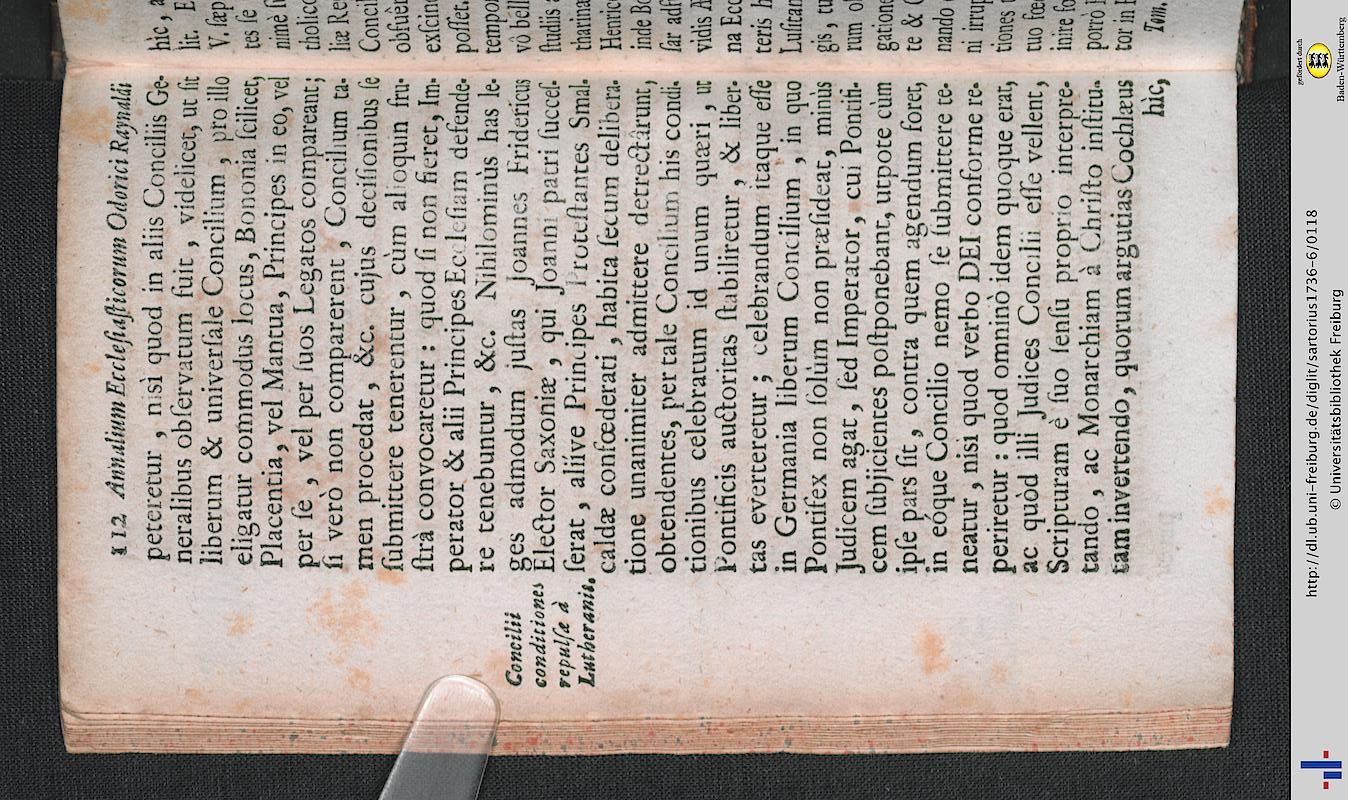 112 Annalium Ecclesiasticorum Odorici Raynaldi
peteretur , nisì quod in aliis Conciliis Ge-
neralibus obſervatum fuit , videlicet, ut ſit
liberum & univerſale Concilium , pro illo
eligatur commodus locus, Bononia ſcilicet,
Placentia, vel Mantua, Principes in eo, vel
per ſe , vel per ſuos Legatos compareant;
ſi verò non comparerent , Concilium ta-
men procedat , &c. cujus deciſionibus ſe
ſubmittere tenerentur , cùm alioquin fru-
ſtrà convocaretur : quod ſi non fieret, Im-
perator & alii Principes Eccleſiam defende-
re tenebuntur , &c. Nihilominùs has le-
ges admodum juſtas Joannes Fridericus
Elector Saxoniæ , qui Joanni patri ſucceſ-
ſerat , aliíve Principes Proteſtantes Smal-
caldæ confœderati , habita ſecum delibera-
tione unanimiter admittere detrectârunt,
obtendentes, per tale Concilium his condi-
tionibus celebratum id unum quæri , ut
Pontificis auctoritas ſtabiliretur , & liber-
tas everteretur ; celebrandum itaque eſſe
in Germania liberum Concilium , in quo
Pontifex non ſolùm non præſideat, minùs
Judicem agat , ſed Imperator , cui Pontifi-
cem ſubjicientes poſtponebant, utpote cùm
ipſe pars ſit , contra quem agendum foret,
in eóque Concilio nemo ſe ſubmittere te-
neatur , nisi quod verbo DEI conforme re-
periretur : quod ominò idem quoque erat,
ac quòd illi Judices Concilii eſſe vellent,
Scripturam è ſuo ſenſu proprio interpre-
tando , ac Monarchiam à Chriſto inſtitu-
tam invertendo, quorum argutias Cochlæus
hìc,
Concilii
conditiones
repulſæ à
Lutheranis.
hìc, a
lit. E
V. ſæp
tes ſe
nimè ſ
tholico
liæ Re
Concil
obſuè
exſcin
poſſet.
tempor
vò bell
ſtudiis a
tharina
Henric
inde Bo
ſar adſ
vidis A
na Ecc
teris h
Luſitan
gis , tu
rum ol
gatione
te & C
nando
ni irrup
tiones t
tuo fœ
inire fo
porrò
tor in
Tom.
http://dl.ub.uni-freiburg.de/diglit/sartorius1736-6/0118
© Universitätsbibliothek Freiburg
gefördert durch
Baden-Württemberg